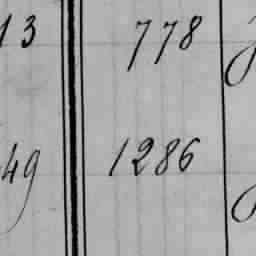 13 778
49 1286